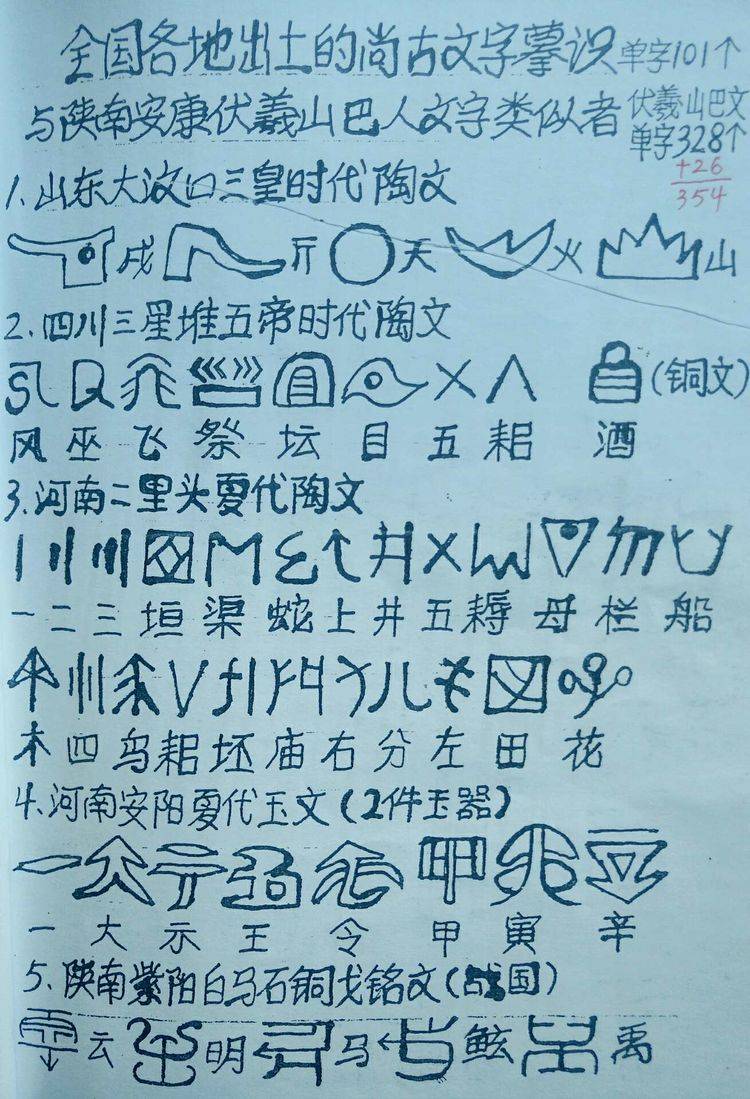 全国各地出土的尚古文字摹识 单字101个
与陕南安康伏羲山巴人文字类似者 伏羲山巴文
单字328个
+26
354
1.山东大汶口三皇时代陶文
戌 斤 天 火 山
2.四川三星堆五帝时代陶文
(铜文)
风 巫 飞 祭 坛 目 五 耜 酒
3.河南二里头夏代陶文
一 二 三 垣 渠 蛇 上 井 五 耨 母 栏 船
木 四 鸟 耜 坯 庙 右 分 左 田 花
4.河南安阳夏代玉文(2件玉器)
一 大 示 王 令 甲 寅 辛
5.陕南紫阳白马石铜戈铭文(战国)
云 明 马 鲅 禹